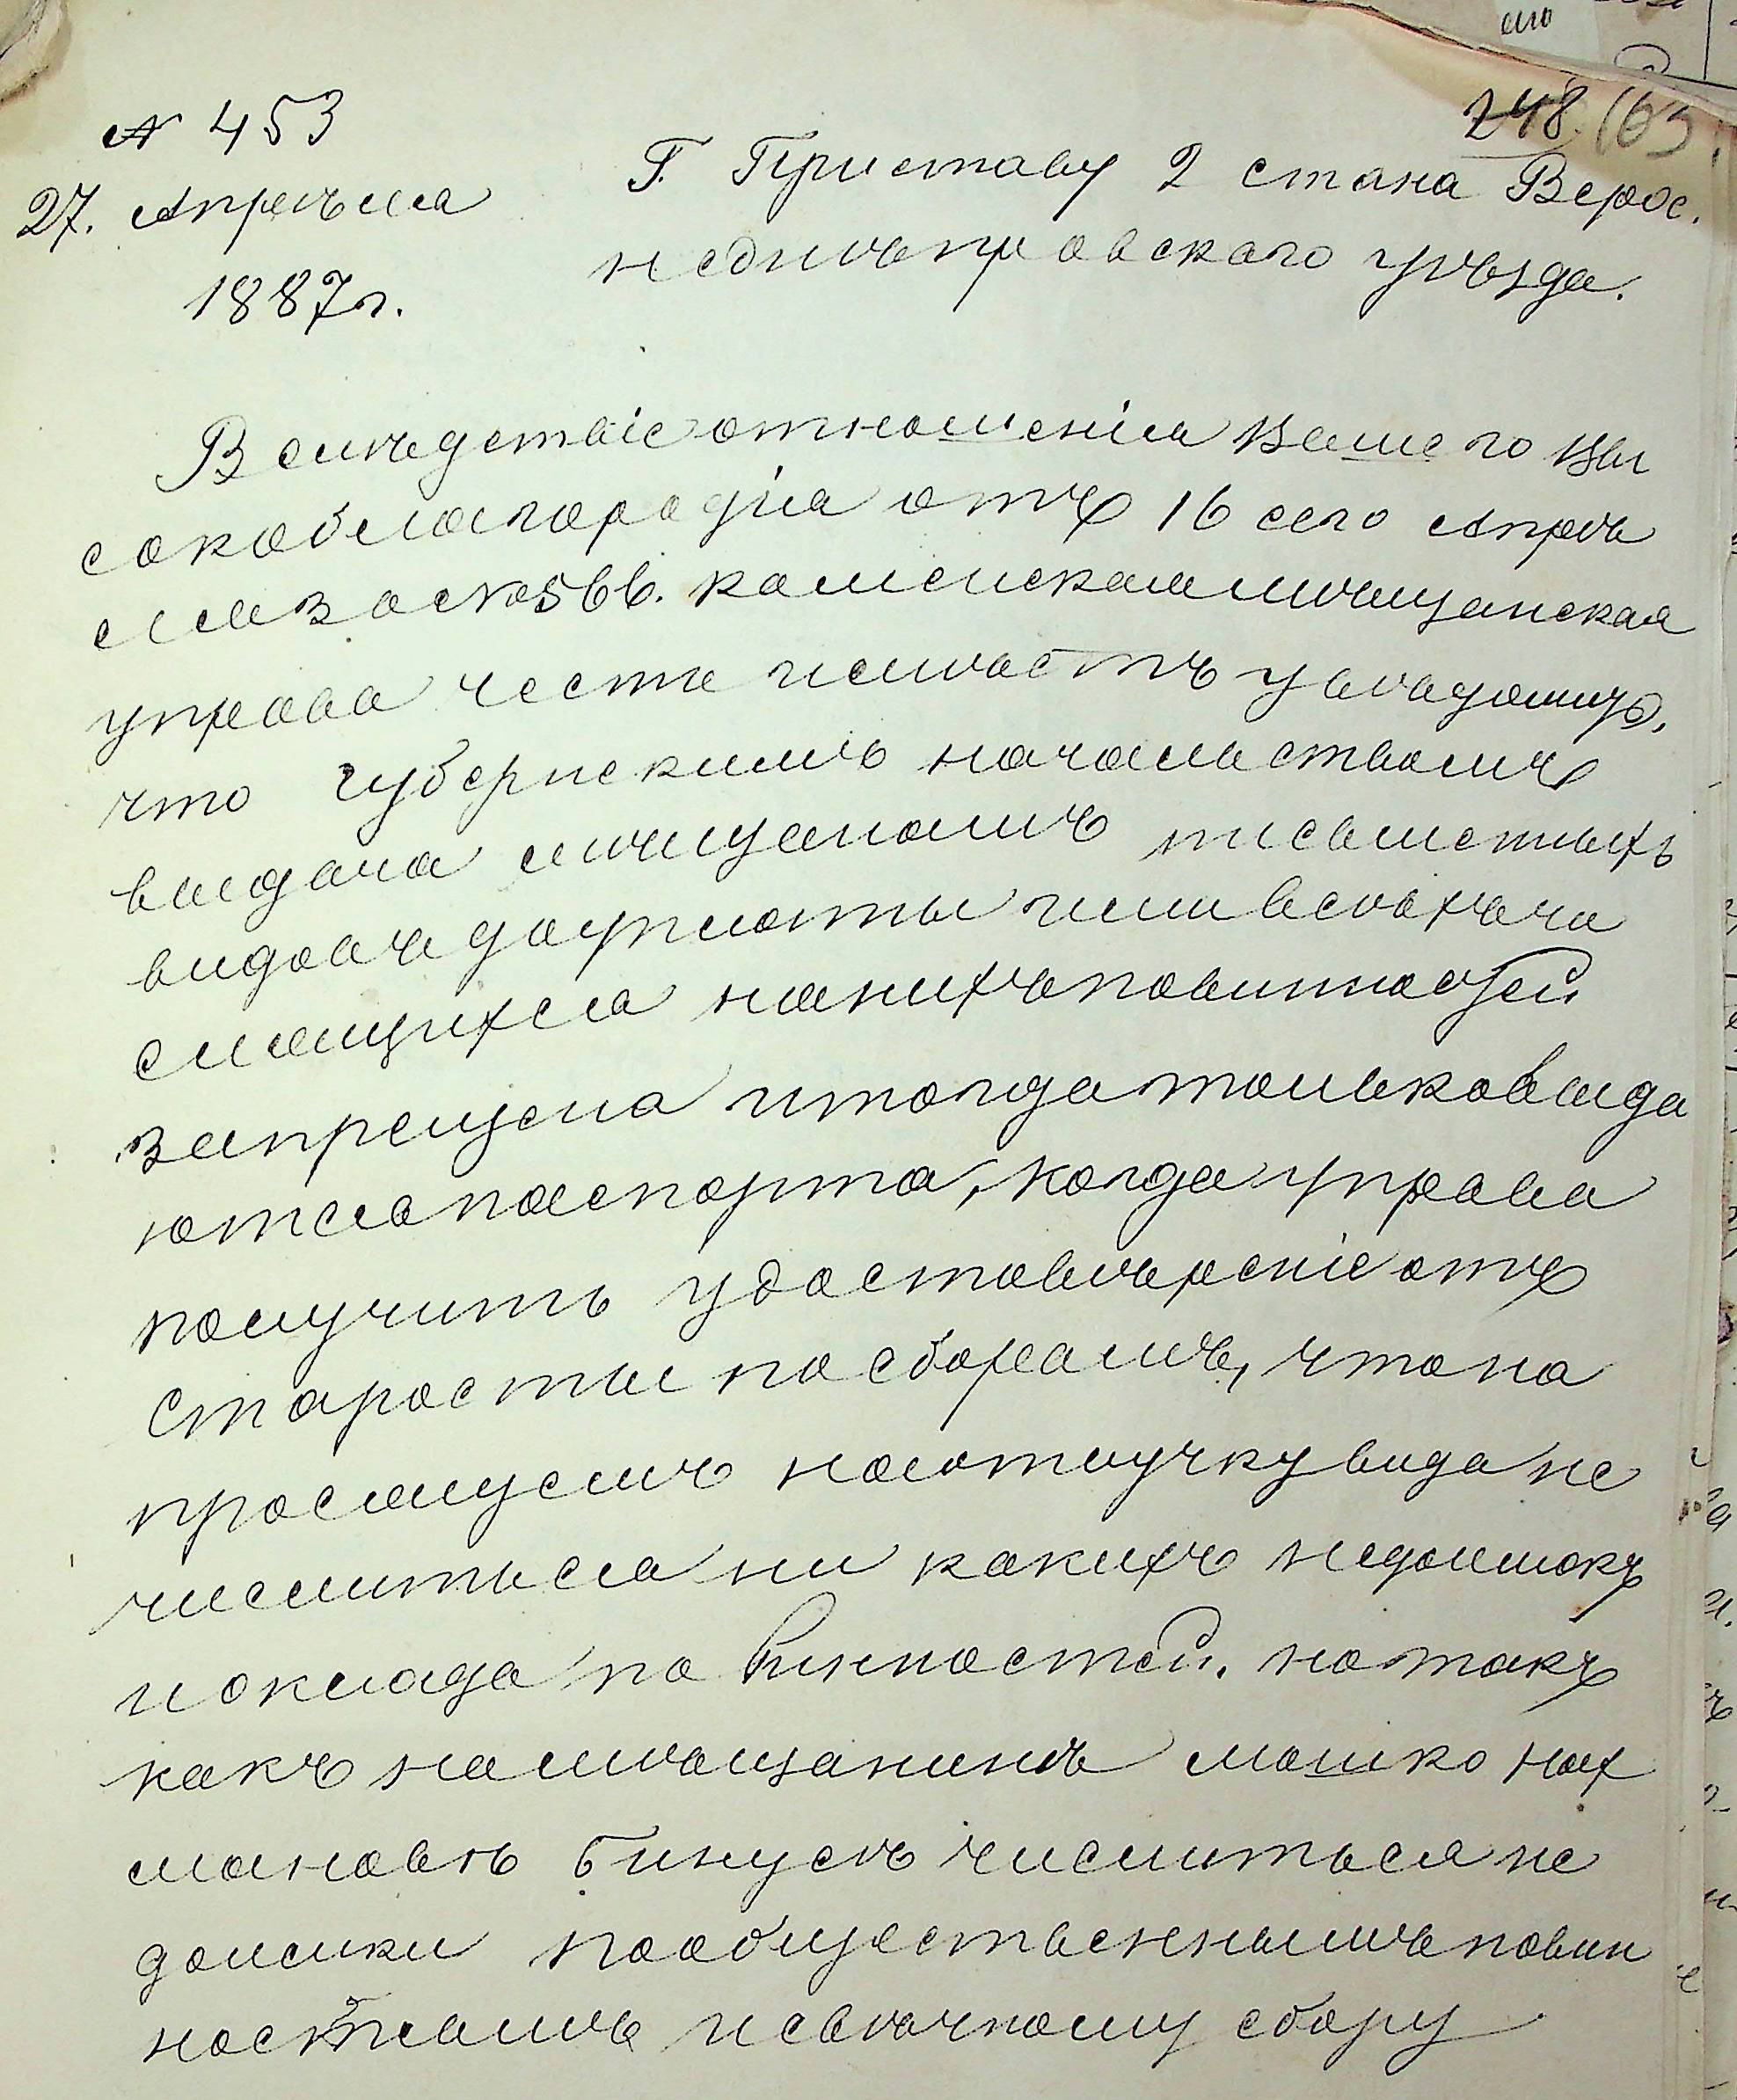 248. (63)
№ 453
27. Апрѣля
1887 г.
Г. Приставу 2 стана Верхо.
недиѣпровскаго уѣзда.
Вслѣдствіе отношенія Вашего Вы
сокоблагородія отъ 16 сего Апрѣ
ля за № 566. каменская мѣщанская
управа честь имѣетъ увѣдомить,
что губернскимъ начальствомъ
выдача мѣщанамъ письменныхъ
видовъ до уплаты ими всѣхъ чи
слящихся на нихъ повинностей
запрещена и тогда только выда
ются паспорта, когда управа
получитъ удостовѣреніе отъ
старосты по сборамъ, что на
просящемъ на отлучку вида не
числиться ни какихъ недоимокъ
и оклада повинностей. но такъ
какъ на мѣщанинѣ мошко нах
мановѣ бинусъ числиться не
доимки по общественнымъ повин
ностямъ и свѣчному сбору